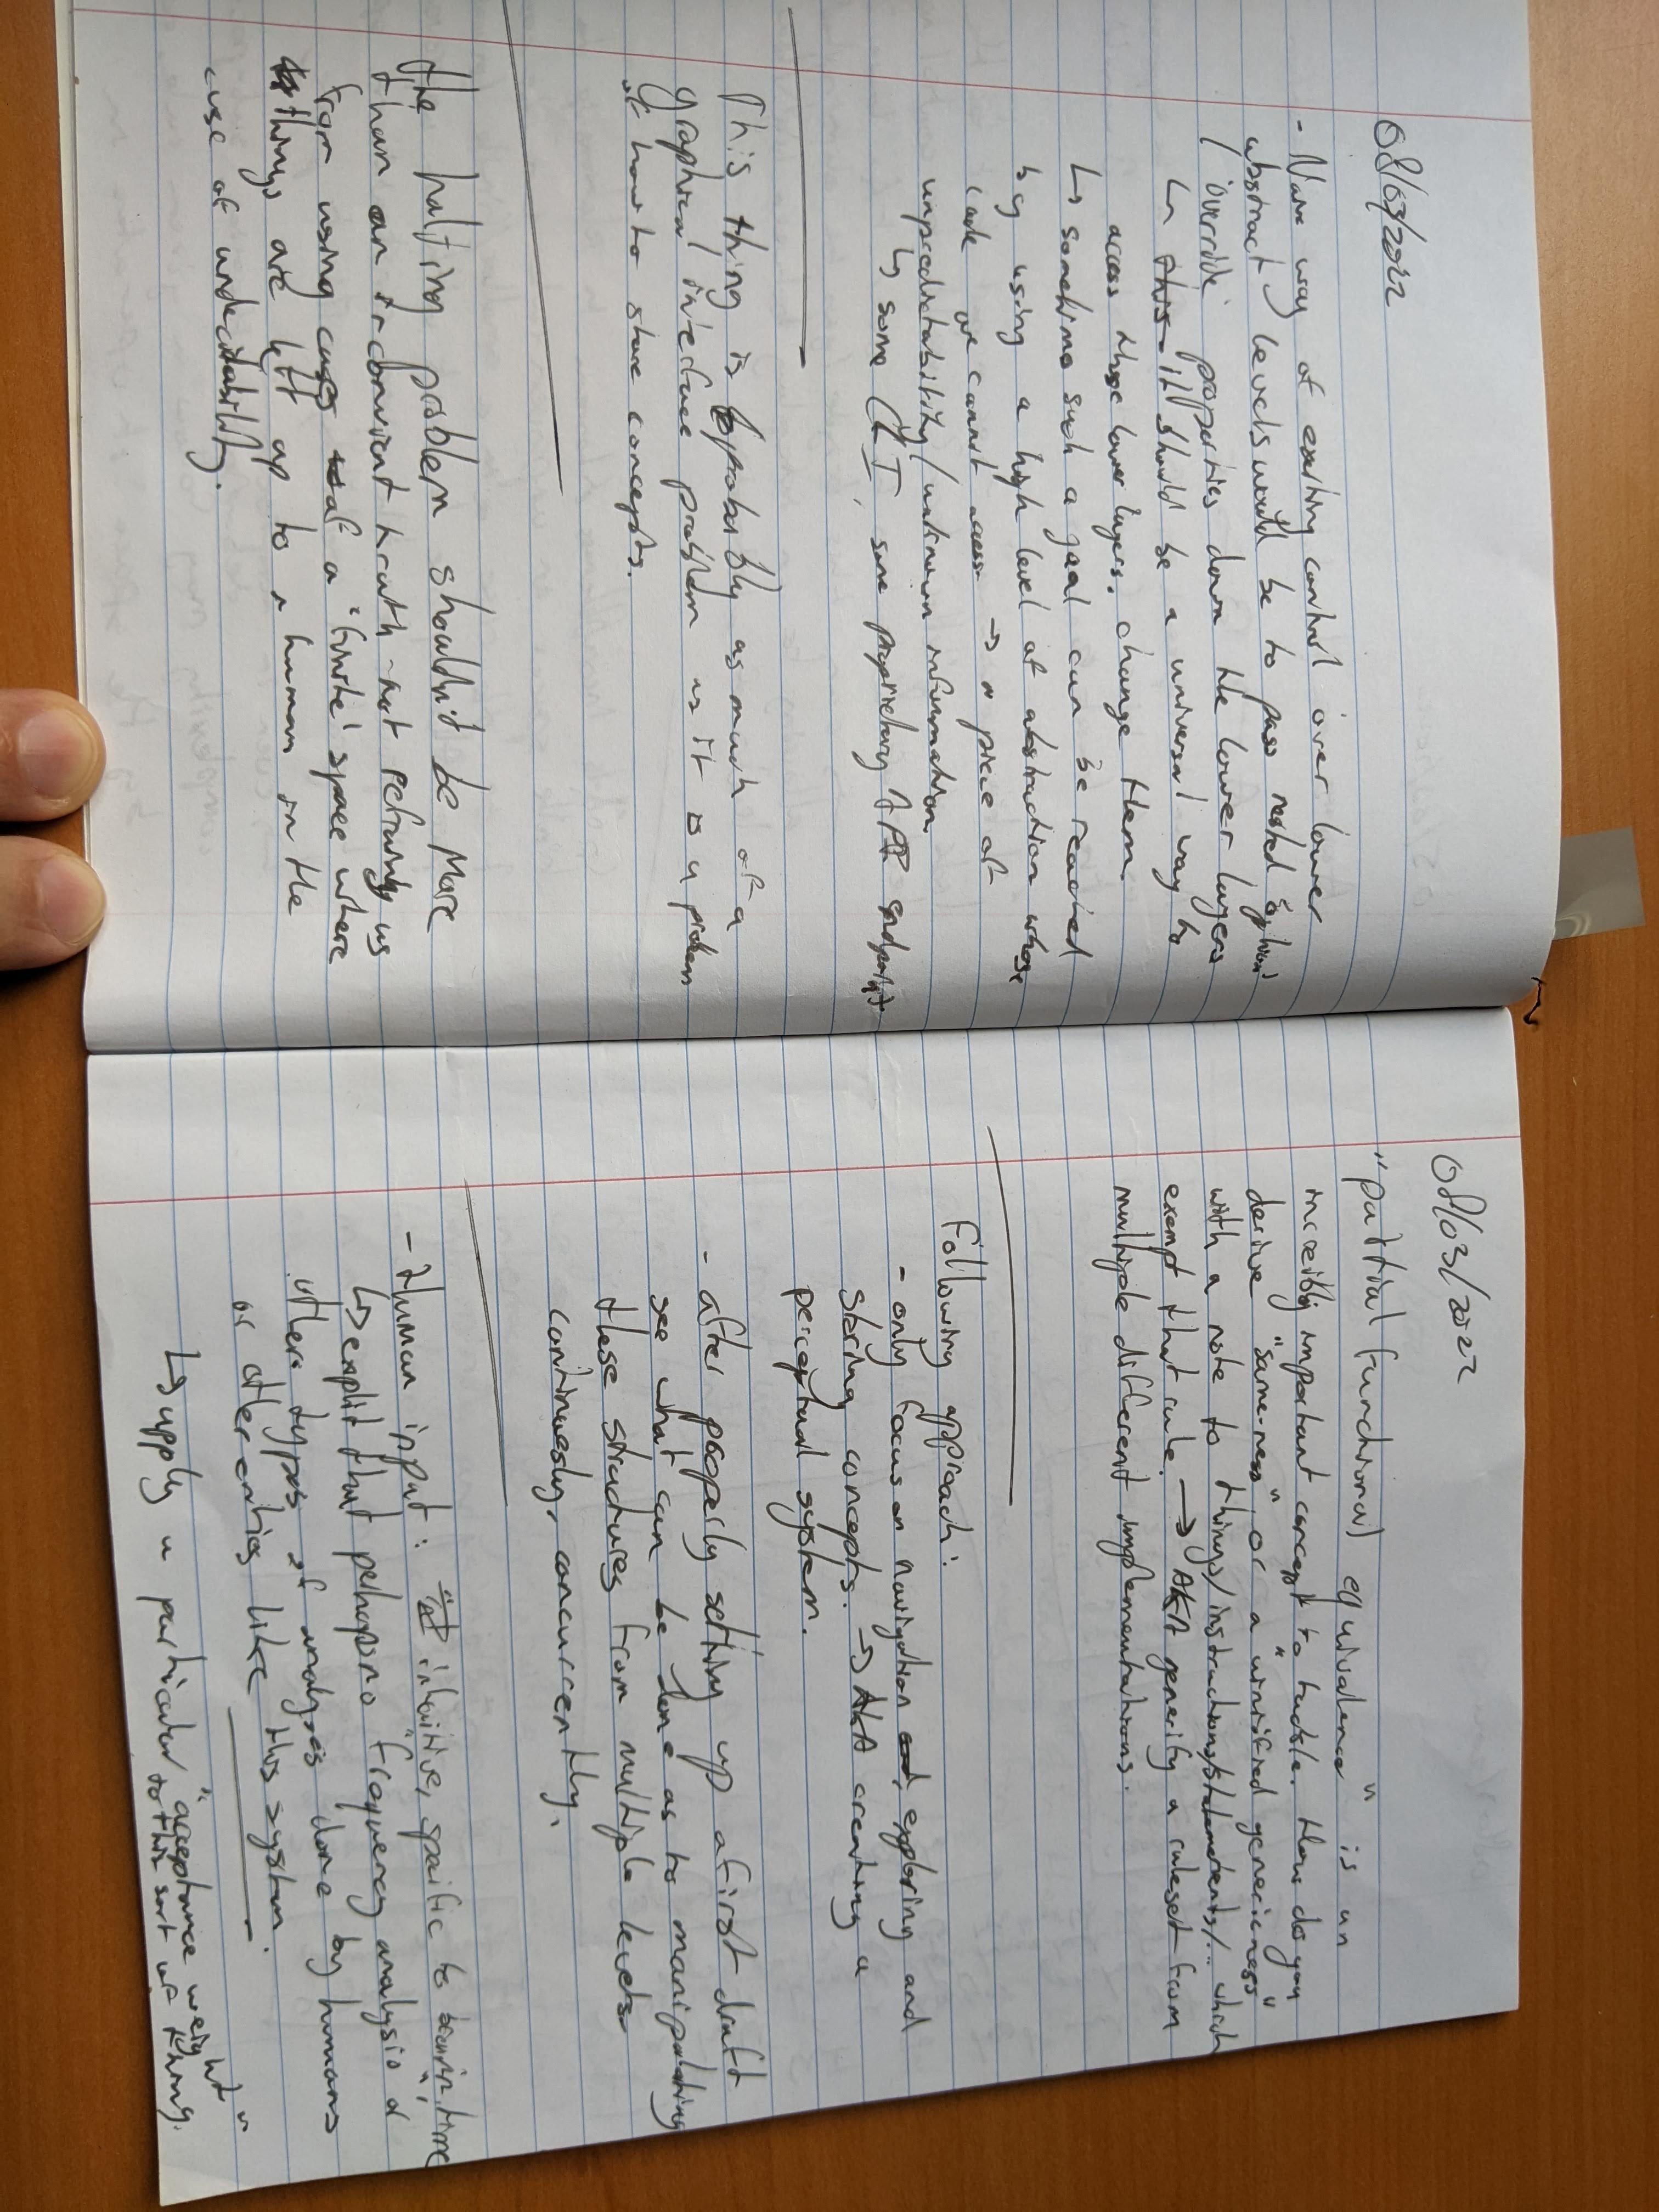 08/03/2022
- Naive way of exerting control over lower
abstract levels would be to pass nested 'options'
/ 'override' properties down the lower layers
↳ this it should be a universal way to
access these lower layers, change them.
↳ sometimes such a goal can be reached
by using a high level of abstraction whose
code we cannot access → a piece of
unpredictability/unknown information
↳ some CLI, some proprietary API endpoint
This thing is probably as much of a
graphical interface problem as it is a problem
of how to store concepts.
The halting problem shouldn't be more
than an inconvenient truth - not refraining us
from using cases of a "finite" space where
things are left up to a human in the
case of undecidability.
08/03/2022
"partial (functional) equivalence" is an
incredibly important concept to tackle. How do you
derive "same-ness", or a "unified genericness"
with a note to things/instructions/statements/... which
exempt that rule. → AKA generify a ruleset from
multiple different implementations.
Following approach:
- only focus on navigation and, exploring and
storing concepts. → AKA creating a
perceptual system.
- after properly setting up a first draft
see what can be done as to manipulating
these structures from multiple levels
continuously, concurrently.
- Human input: intuitive, specific to brain, time
↳ exploit that perhaps no "frequency analysis" or
other types of analyses done by humans
or other entities like this system.
↳ supply a particular "acceptance weight"
to this sort of thing.